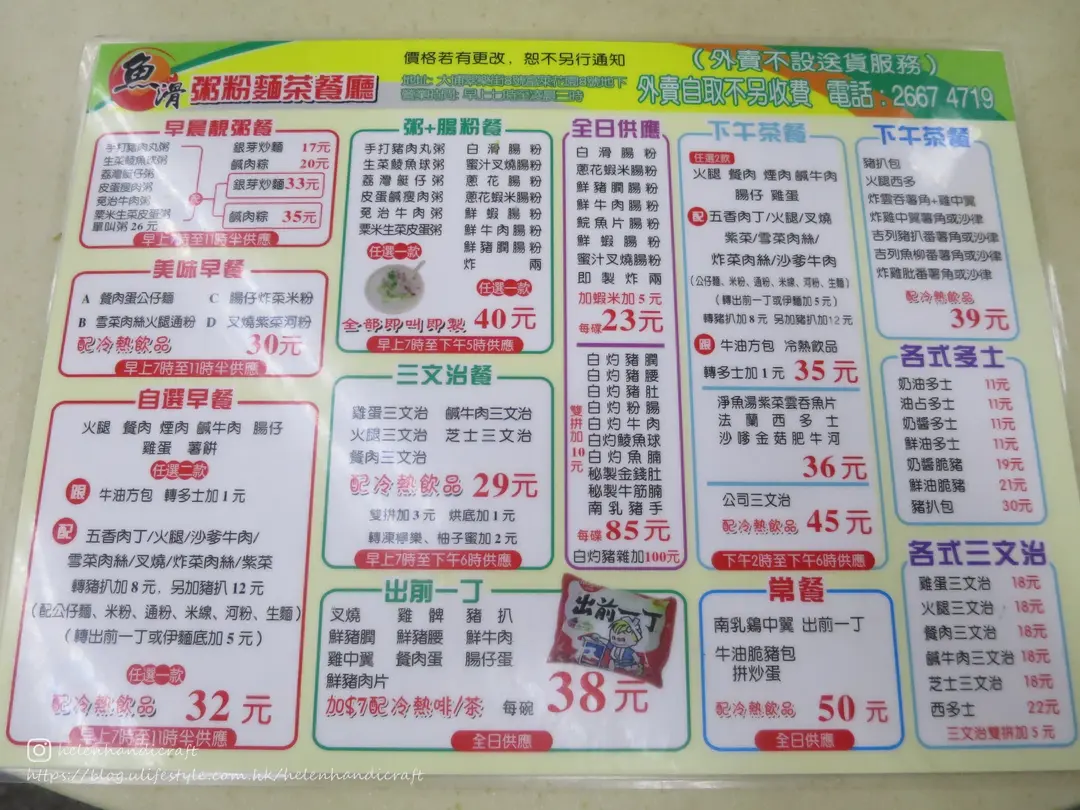 魚滑
粥粉麵茶餐廳
價格若有更改，恕不另行通知
營業時間: 早上七時至
(外賣不設送貨服務)
外賣自取不另收費 電話 : 2667 4719
早晨靚粥餐
手打豬肉丸粥
生菜鯪魚球粥
荔灣艇仔粥
皮蛋瘦肉粥
免治牛肉粥
粟米生菜皮蛋粥
單叫粥 26 元
銀芽炒麵 17元
鹹肉粽 20元
配
銀芽炒麵 33元
鹹肉粽 35元
早上7時至11時半供應
美味早餐
A 餐肉蛋公仔麵 C 腸仔炸菜米粉
B 雪菜肉絲火腿通粉 D 叉燒紫菜河粉
配冷熱飲品 30元
早上7時至11時半供應
自選早餐
火腿 餐肉 煙肉 鹹牛肉 腸仔
雞蛋 薯餅
任選二款
跟 牛油方包 轉多士加 1 元
配 五香肉丁/火腿/沙爹牛肉/
雪菜肉絲/叉燒/炸菜肉絲/紫菜
轉豬扒加 8 元，另加豬扒 12 元
(配公仔麵、米粉、通粉、米線、河粉、生麵)
(轉出前一丁或伊麵底加 5 元)
任選一款
配冷熱飲品 32 元
早上7時至11時半供應
粥+腸粉餐
手打豬肉丸粥
生菜鯪魚球粥
荔灣艇仔粥
皮蛋鹹瘦肉粥
免治牛肉粥
粟米生菜皮蛋粥
任選一款
白滑腸粉
蜜汁叉燒腸粉
蔥花腸粉
蔥花蝦米腸粉
鮮蝦腸粉
鮮牛肉腸粉
鮮豬膶腸粉
炸兩
任選一款
全部即叫即製 40 元
早上7時至下午5時供應
三文治餐
雞蛋三文治 鹹牛肉三文治
火腿三文治 芝士三文治
餐肉三文治
配冷熱飲品 29元
雙拼加 3 元 烘底加 1 元
轉凍檸樂、柚子蜜加 2 元
早上7時至下午6時供應
出前一丁
叉燒 雞髀 豬扒
鮮豬膶 鮮豬腰 鮮牛肉
雞中翼 餐肉蛋 腸仔蛋
鮮豬肉片
加$7配冷熱啡/茶 每碗 38元
出前一丁
全日供應
全日供應
白滑腸粉
蔥花蝦米腸粉
鮮豬膶腸粉
鮮牛肉腸粉
鯇魚片腸粉
鮮蝦腸粉
蜜汁叉燒腸粉
即製炸兩
加蝦米加 5 元
每碟23元
雙拼加10元
白灼豬膶
白灼豬腰
白灼豬肚
白灼粉腸
白灼牛肉
白灼鯪魚球
白灼魚腩
秘製金錢肚
秘製牛筋腩
南乳豬手
每碟85元
白灼豬雜加100元
下午茶餐
任選2款
火腿 餐肉 煙肉 鹹牛肉
腸仔 雞蛋
配 五香肉丁/火腿/叉燒
紫菜/雪菜肉絲/
炸菜肉絲/沙爹牛肉
(公仔麵、米粉、通粉、米線、河粉、生麵)
(轉出前一丁或伊麵加 5 元)
轉豬扒加 8 元 另加豬扒加12 元
跟 牛油方包 冷熱飲品
轉多士加 1 元 35 元
淨魚湯紫菜雲吞魚片
法蘭西多士
沙嗲金菇肥牛河
36 元
公司三文治
配冷熱飲品 45元
下午2時至下午6時供應
常餐
南乳鷄中翼 出前一丁
牛油脆豬包
拼炒蛋
配冷熱飲品 50 元
全日供應
下午茶餐
豬扒包
火腿西多
炸雲吞薯角+雞中翼
炸雞中翼薯角或沙律
吉列豬扒番薯角或沙律
吉列魚柳番薯角或沙律
炸雞肶番薯角或沙律
配冷熱飲品
39元
各式多士
奶油多士 11元
油占多士 11元
奶醬多士 11元
鮮油多士 11元
奶醬脆豬 19元
鮮油脆豬 21元
豬扒包 30元
各式三文治
雞蛋三文治 18元
火腿三文治 18元
餐肉三文治 18元
鹹牛肉三文治 18元
芝士三文治 18元
西多士 22元
三文治雙拼加 5 元
helenhandicraft
https://blog.ulifestyle.com.hk/helenhandicraft